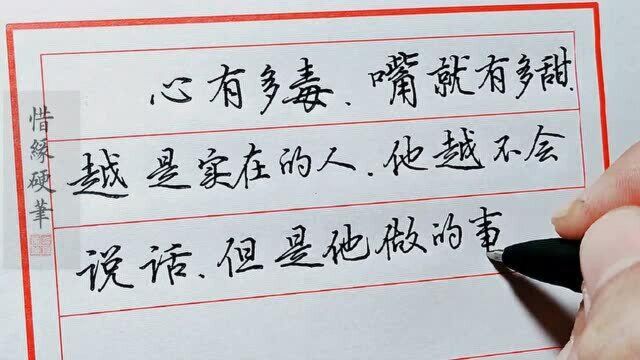 心有多毒、嘴就有多甜、
越是实在的人、他越不会
说话、但是他做的事
惜緣硬筆